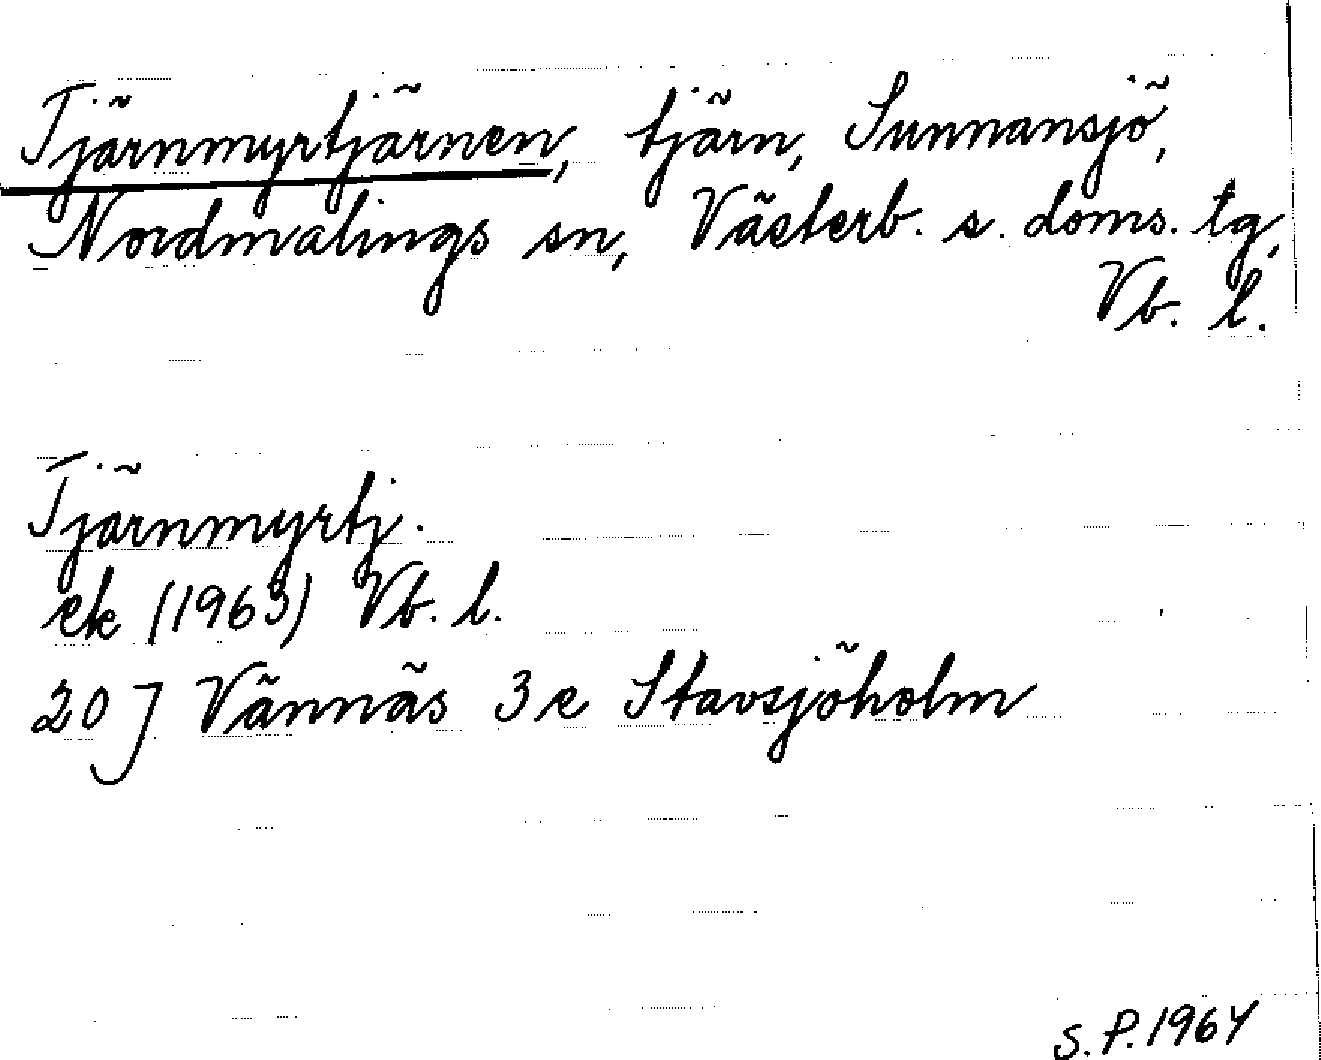 Tjärnmyrtjärnen, tjärn, Sunnansjö,
Nordmalings sn, Västerb. s. doms. tg,
Vb. l.
Tjärnmyrtj.
ek (1963) Vb. l.
20 J Vännäs 3 e Stavsjöholm
S. P. 1964